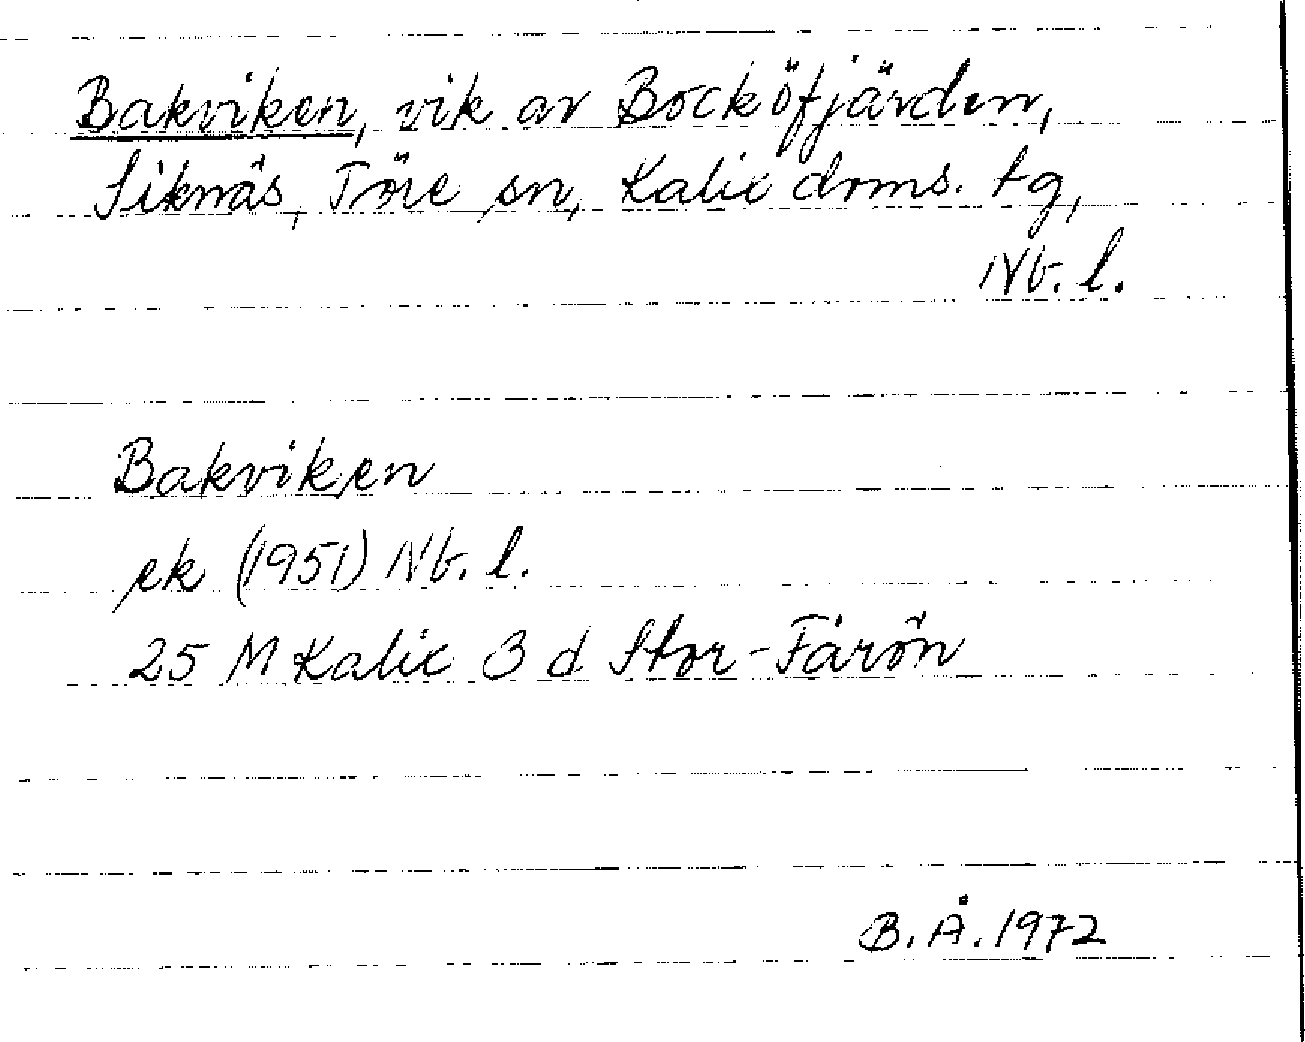 Bakviken, vik av Bocköfjärden,
Siknäs, Töre sn, Kalix doms. tg,
Nb. l.
Bakviken
ek (1951) Nb. l.
25 M Kalix 3 d Stor-Fårön
B. Å. 1972